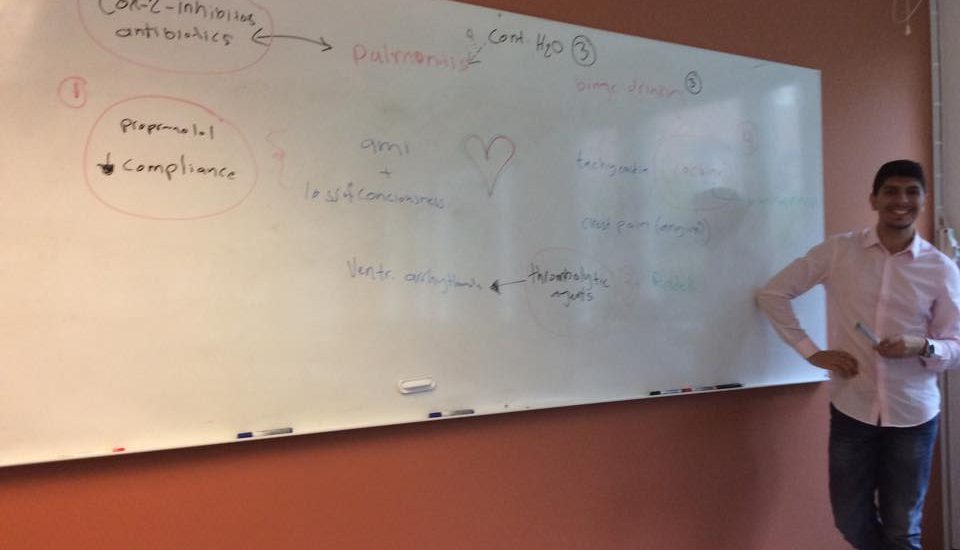 Cox-2-inhibitos
antibiotics
pulmonis
Cont. H2O ③
binge drinkin ③
①
propranolol
↓ compliance
ami
+
loss of conciousness
tachycardia
chest pain (angina)
Ventr. arrhythmia
thrombolytic
agents